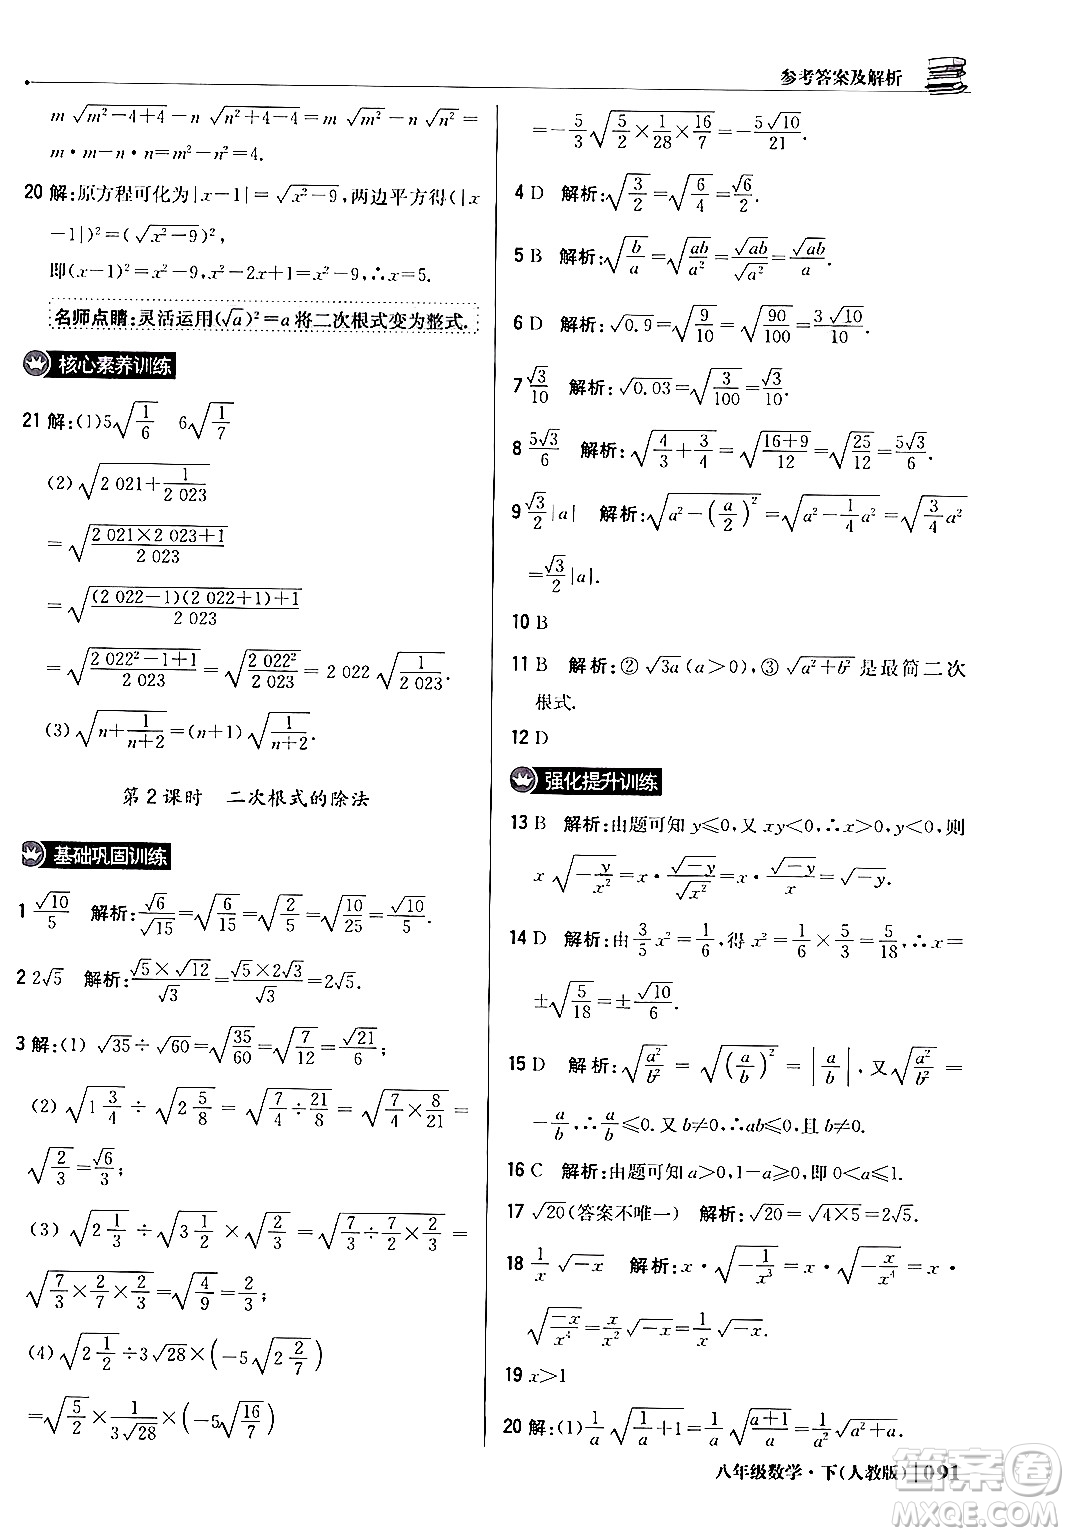 参考答案及解析
m√(m²-4+4)-n√(n²+4-4)=m√(m²)-n√(n²)=
m·m-n·n=m²-n²=4.
20 解:原方程可化为|x-1|=√(x²-9),两边平方得(|x
-1|)²=(√(x²-9))²,
即(x-1)²=x²-9,x²-2x+1=x²-9,∴x=5.
名师点睛:灵活运用(√a)²=a将二次根式变为整式.
核心素养训练
21 解:(1)5√(1/6) 6√(1/7)
(2)√(2 021+1/2 023)
=√((2 021×2 023+1)/2 023)
=√(((2 022-1)(2 022+1)+1)/2 023)
=√((2 022²-1+1)/2 023)=√(2 022²/2 023)=2 022√(1/2 023).
(3)√(n+1/(n+2))=(n+1)√(1/(n+2)).
第2课时 二次根式的除法
基础巩固训练
1 √10/5 解析:√6/√15=√(6/15)=√(2/5)=√(10/25)=√10/5.
2 2√5 解析:(√5×√12)/√3=(√5×2√3)/√3=2√5.
3 解:(1)√35÷√60=√(35/60)=√(7/12)=√21/6;
(2)√(1 3/4)÷√(2 5/8)=√(7/4÷21/8)=√(7/4×8/21)=
√(2/3)=√6/3;
(3)√(2 1/3)÷√(3 1/2)×√(2/7)=√(7/3÷7/2×2/7)=
√(7/3×2/7×2/7)=√(4/9)=2/3;
(4)√(2 1/2)÷3√28×(-5√(2 2/7))
=√(5/2)×1/(3√28)×(-5√(16/7))
=-5/3√(5/2×1/28×16/7)=-5√10/21.
4 D 解析:√(3/2)=√(6/4)=√6/2.
5 B 解析:√(b/a)=√(ab/a²)=√ab/√(a²)=√ab/a.
6 D 解析:√0.9=√(9/10)=√(90/100)=3√10/10.
7 √3/10 解析:√0.03=√(3/100)=√3/10.
8 5√3/6 解析:√(4/3+3/4)=√((16+9)/12)=√(25/12)=5√3/6.
9 √3/2|a| 解析:√(a²-(a/2)²)=√(a²-1/4a²)=√(3/4a²)
=√3/2|a|.
10 B
11 B 解析:②√3a(a>0),③√(a²+b²)是最简二次
根式.
12 D
强化提升训练
13 B 解析:由题可知y≤0,又xy<0,∴x>0,y<0,则
x√(-y/x²)=x·√-y/√(x²)=x√-y/x=√-y.
14 D 解析:由3/5x²=1/6,得x²=1/6×5/3=5/18,∴x=
±√(5/18)=±√10/6.
15 D 解析:√(a²/b²)=√((a/b)²)=|a/b|,又√(a²/b²)=
-a/b,∴a/b≤0.又b≠0,∴ab≤0,b≠0.
16 C 解析:由题可知a>0,1-a≥0,即0<a≤1.
17 √20(答案不唯一) 解析:√20=√(4×5)=2√5.
18 1/x√-x 解析:x·√(-1/x³)=x·√(-x/x⁴)=x·
√(-x)/√(x⁴)=x/x²√-x=1/x√-x.
19 x>1
20 解:(1)1/a√(1/a+1)=1/a√((a+1)/a)=1/a²√(a²+a).
八年级数学·下(人教版) 091
答案圈
MXQE.COM